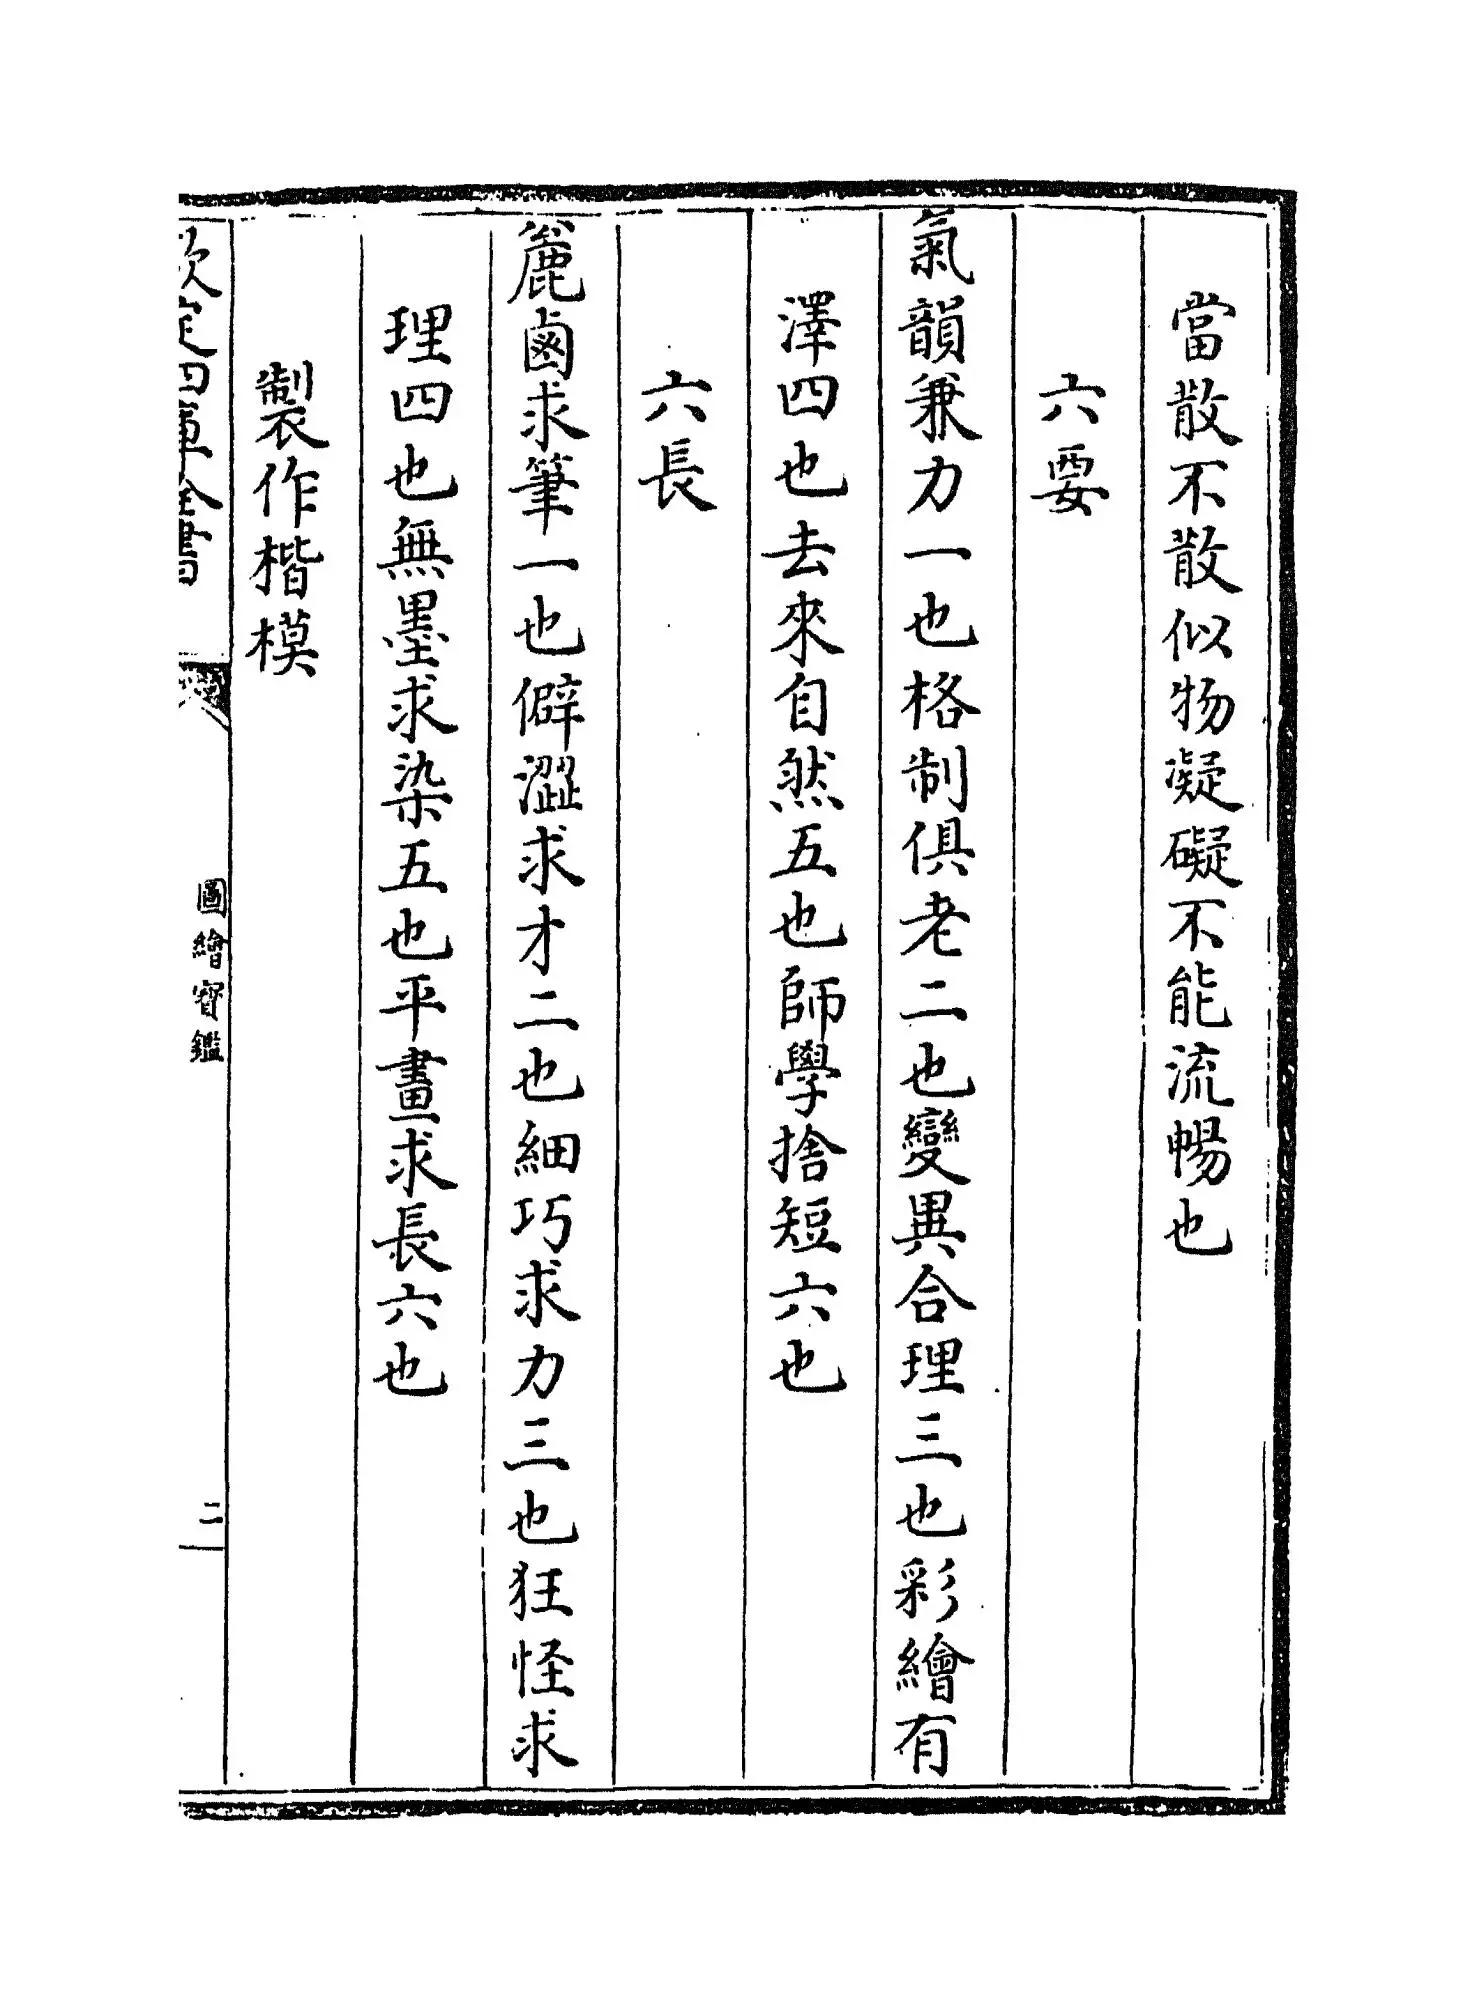 當散不散似物凝礙不能流暢也
六要
氣韻兼力一也格制俱老二也變異合理三也彩繪有
澤四也去來自然五也師學捨短六也
六長
麄鹵求筆一也僻澀求才二也細巧求力三也狂怪求
理四也無墨求染五也平畫求長六也
製作楷模
欽定四庫全書
圖繪寳鑑
二